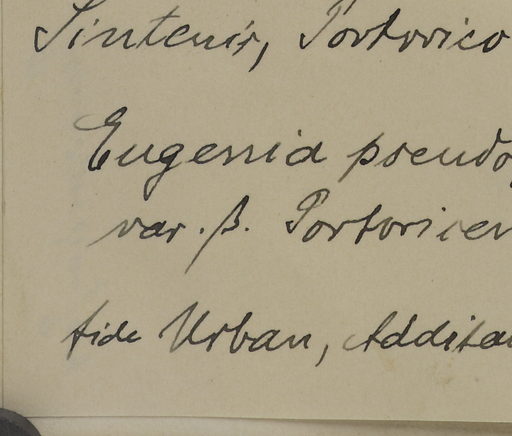 Sintenis, Portorico
Eugenia pseudo
var. β. Portoricen
fide Urban, Additam